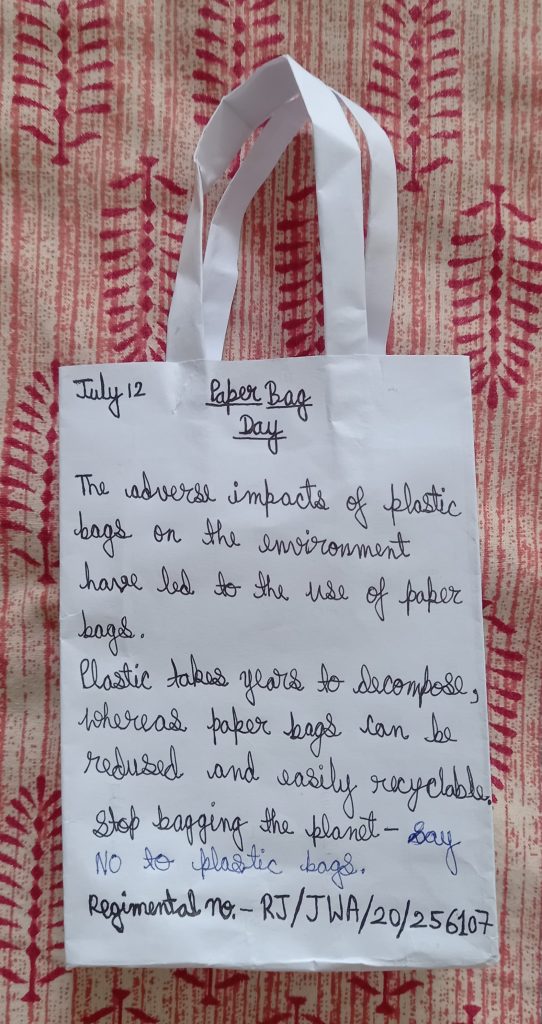 July 12 Paper Bag
Day
The adverse impacts of plastic
bags on the environment
have led to the use of paper
bags.
Plastic takes years to decompose,
whereas paper bags can be
redused and easily recyclable.
Stop bagging the planet - Say
NO to plastic bags.
Regimental no. - RJ/JWA/20/256107